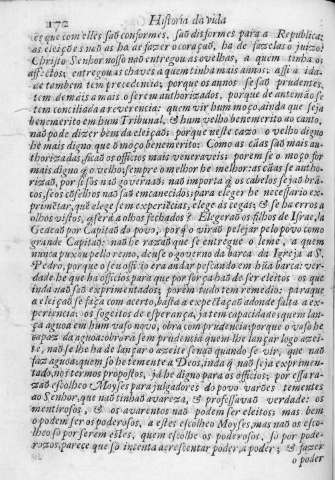 172 Historia da vida
es que com elles saõ conformes, saõ disformes para a Republica;
as eleiçoẽs naõ as ha de fazer o coraçaõ, ha de fazelas o juizo:
Christo Senhor nosso naõ entregou as ovelhas, a quem tinha os
affectos; entregou as chaves a quem tinha mais annos: assi a ida-
de tambem tem precedencia; porque os annos se saõ prudentes,
tem demais a mais o serem authorizados, porque de antemaõ se
tem conciliada a reverencia: quem vir hum moço, ainda que seja
benemerito em hum Tribunal, & hum velho benemerito ao canto,
naõ pode dizer bem da eleiçaõ: porque neste cazo o velho digno
he mais digno que o moço benemerito: Como as cãas saõ mais au-
thorizadas, ficaõ os officios mais veneraveis: porèm se o moço for
mais digno q̃ o velho, sempre o melhor he melhor: as cãas se autho-
rizaõ, por se saõ nao importa q̃ os cabelos sejaõ brã-
cos, se os conselhos naõ saõ encanecidos; para eleger he necessario ex-
primẽtar, que elege sem experiẽcias, elege às cegas; & se ha erros a
olhos vistos, q̃ serà a olhos fechados? Elegeraõ os filhos de Israel, a
Gedeaõ por Capitaõ do povo, porq̃ o viraõ pelejar pelo povo como
grande Capitaõ: naõ he razaõ que se entregue o leme, a quem
nunca puxou pello remo, deuse o governo da barca da Igreja a S.
Pedro, porque o seu officio era andar pescando em hũa barca: ver-
dade he que ha officios para que por força haõ de ser eleitos os que
inda naõ saõ exprimentados; porèm tudo tem remedio: para que
a eleiçaõ se faça com acerto, basta a expectaçaõ adonde falta a ex-
periencia: os sogeitos de esperança, ja tem capacidade: quem lan-
ça agua em hum vaso novo, obra com prudencia; porque o vaso he
capaz da agua: obrarà sem prudencia quem lhe lançar logo azei-
te, naõ se lhe ha de lançar o azeite senaõ quando se vir, que naõ
faz agua: quem só he temente a Deos, inda q̃ naõ seja exprimen-
tado, nos termos propostos, jà he digno para os officios; por essa ra-
zaõ escolheo Moyses para julgadores do povo varões tementes
ao Senhor, que naõ tinhaõ avareza, & professavaõ verdade: os
mentirosos, & os avarentos naõ podem ser eleitos; mas bem
o podem ser os poderosos, a estes escolheo Moyses, mas naõ os esco-
lheo só por serem estes, quem escolhe os poderosos, só por pode-
rozos, parece que só intenta acrescentar poder, a poder; & fazer
o poder